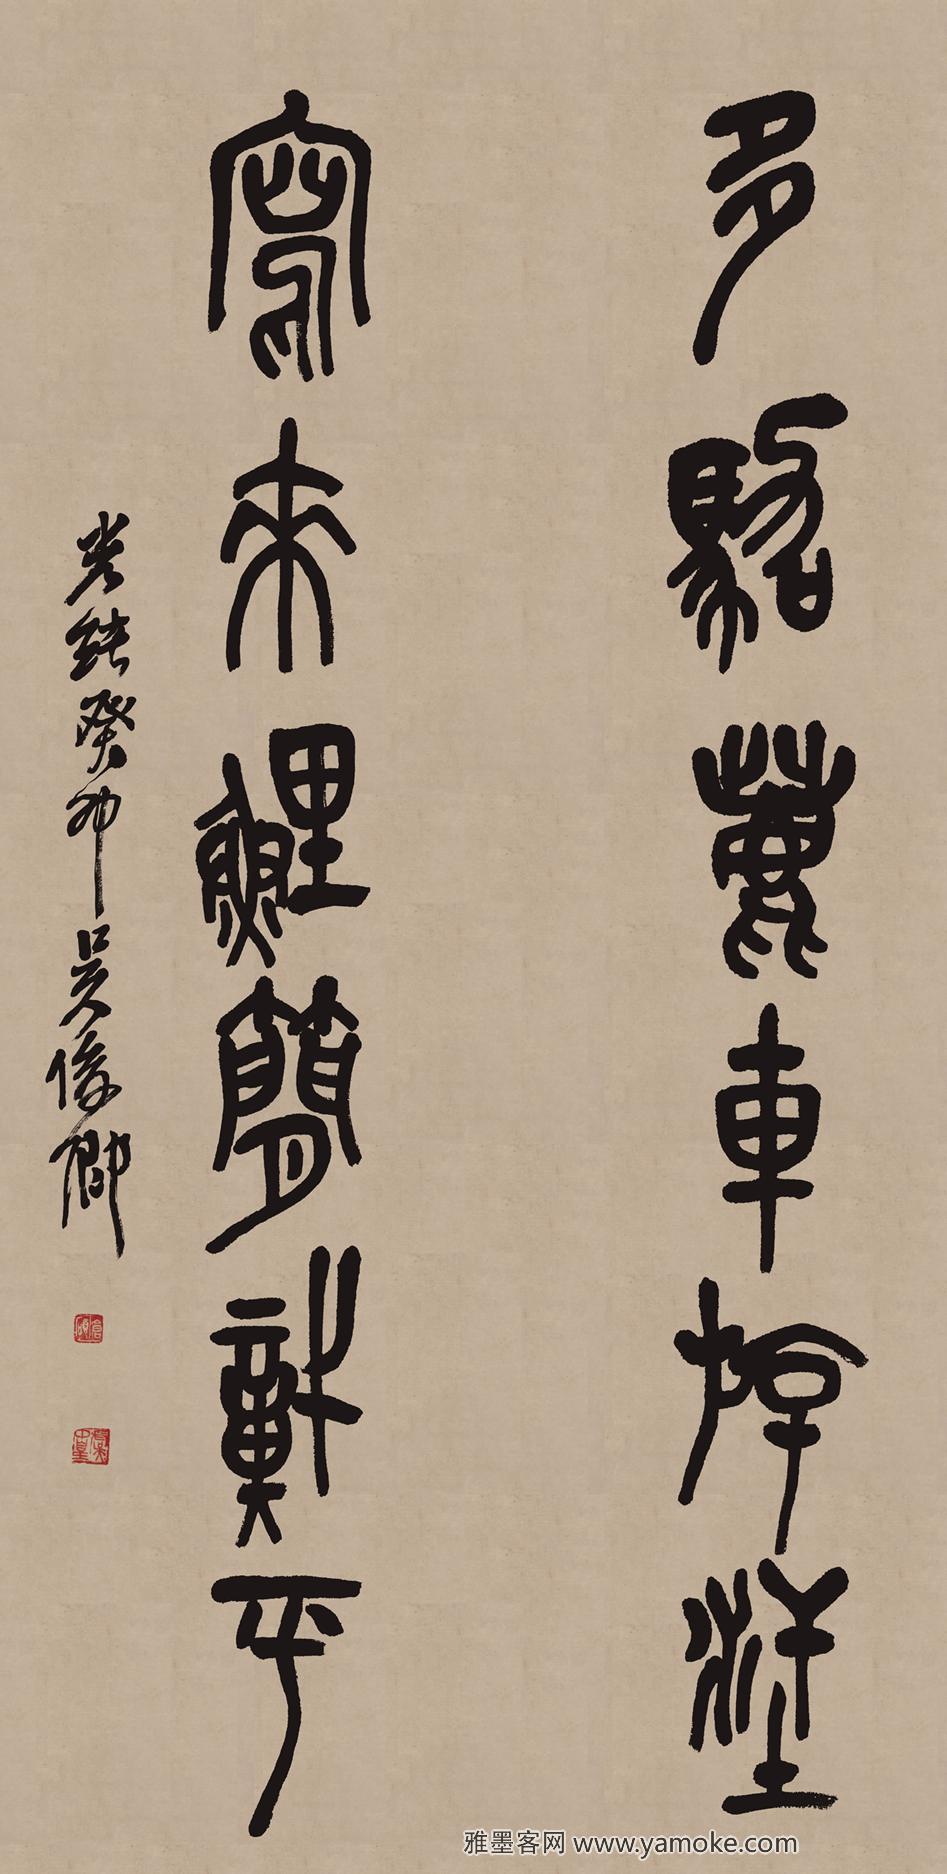 多駱薦車斿
寫來鯉簡平
光緒癸卯吳俊卿
倉碩
雅墨客网 www.yamoke.com